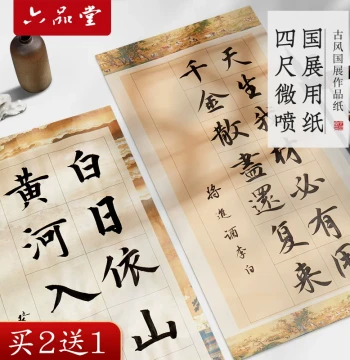 六品堂
古风国展作品纸
国展用纸
四尺微喷
天生我
材必有用
千金散盡還
复来
将进酒李白
白日依山
黄河入
买2送1